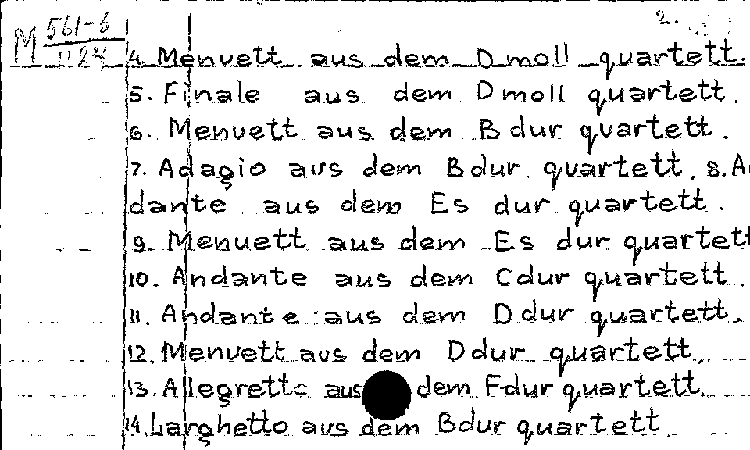 M 561-6 2.
1124 4. Menvett aus dem D moll quartett.
5. Finale aus dem D moll quartett.
6. Menvett aus dem B dur qvartett.
7. Adagio aus dem Bdur qvartett. 8. An
dante aus dem Es dur quartett.
9. Menuett aus dem Es dur quartett
10. Andante aus dem Cdur quartett.
11. Andante aus dem D dur quartett.
12. Menvett aus dem Ddur quartett.
13. Allegretto aus dem Fdur quartett.
14. Larghetto aus dem Bdur quartett.